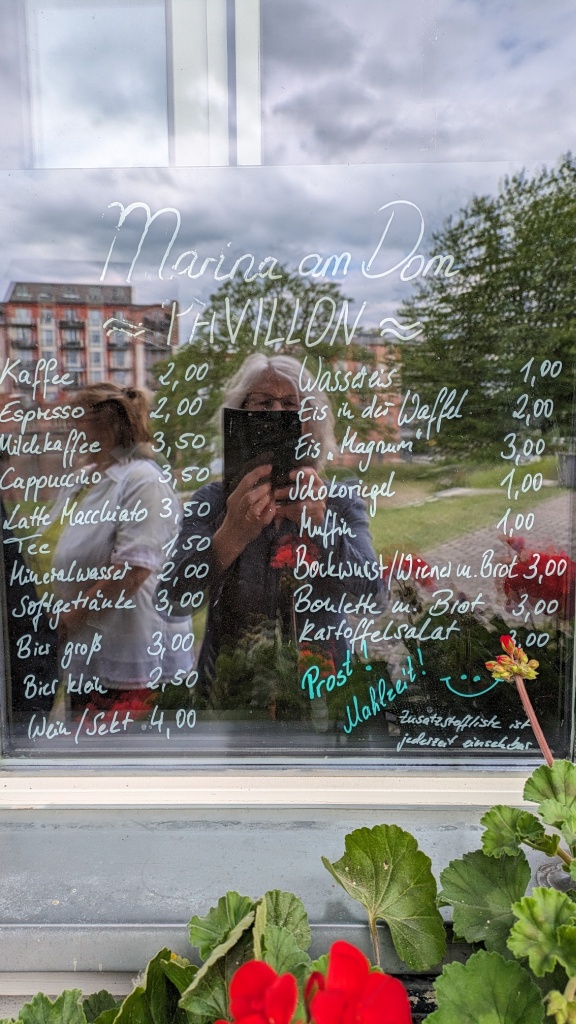 Marina am Dom
≈ PAVILLON ≈
Kaffee 2,00
Espresso 2,00
Milchkaffee 3,50
Cappuccino 3,50
Latte Macchiato 3,50
Tee 1,50
Mineralwasser 2,00
Softgetränke 3,00
Bier groß 3,00
Bier klein 2,50
Wein/Sekt 4,00
Wassereis 1,00
Eis in der Waffel 2,00
Eis „Magnum" 3,00
Schokoriegel 1,00
Muffin 1,00
Bockwurst/Wiener m. Brot 3,00
Boulette m. Brot 3,00
Kartoffelsalat
Prost!
Mahlzeit!
Zusatzstoffliste ist
jederzeit einsehbar